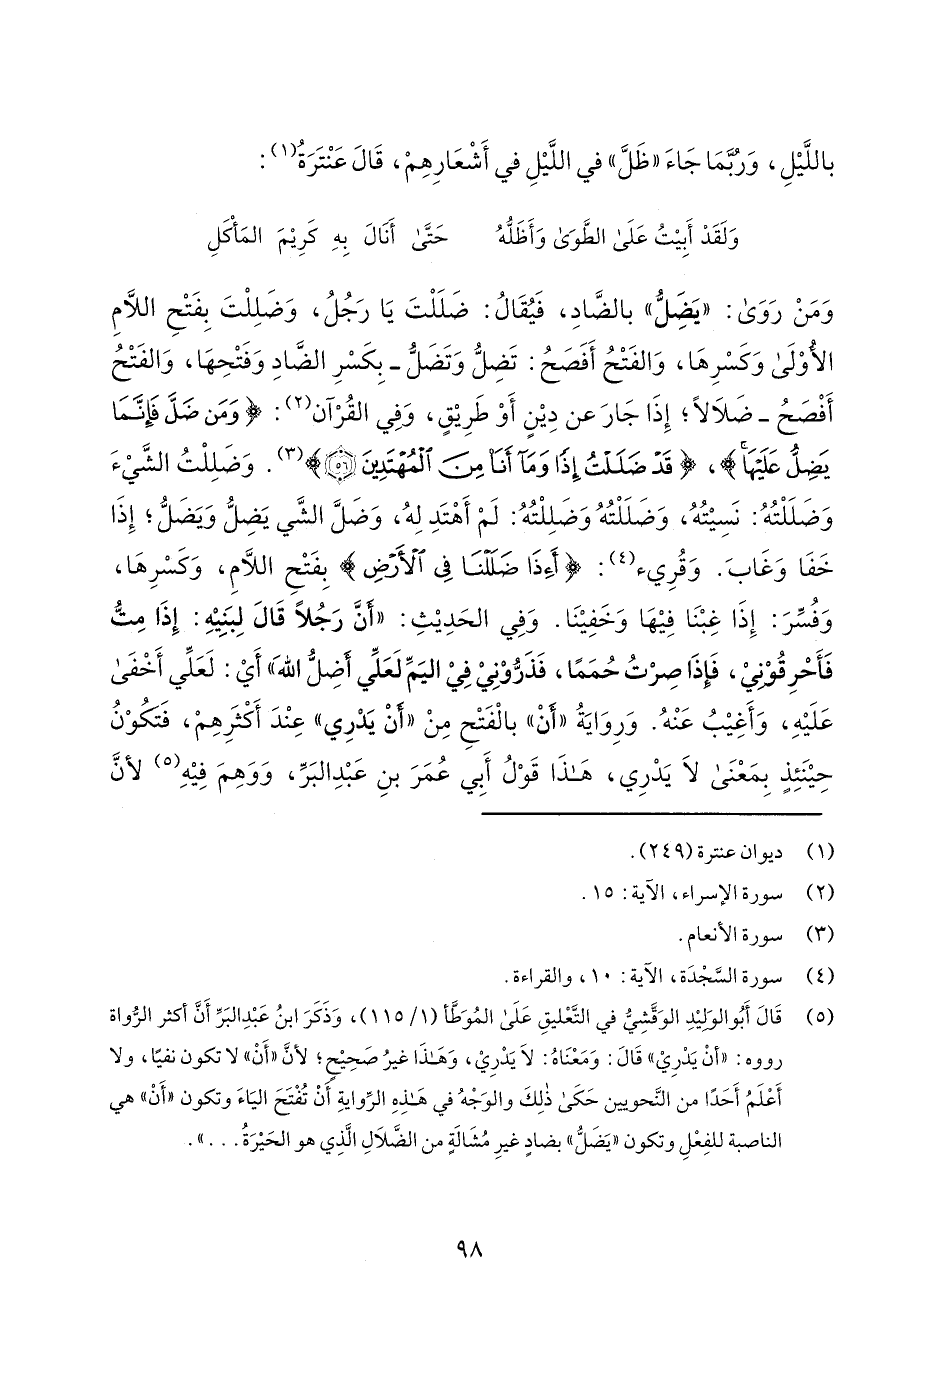 باللَّيْلِ، وَرُبَّمَا جَاءَ «ظَلَّ» في اللَّيْلِ في أَشْعَارِهِمْ، قَالَ عَنْتَرَةُ(١):
وَلَقَدْ أَبِيْتُ عَلَىٰ الطَّوَىٰ وَأَظَلُّهُ حَتَّىٰ أَنَالَ بِهِ كَرِيْمَ المَأْكَلِ
وَمَنْ رَوَىٰ: «يَضِلُّ» بالضَّادِ، فَيُقَالُ: ضَلَلْتَ يَا رَجُلُ، وَضَلِلْتَ بِفَتْحِ اللَّامِ
الأُوْلَىٰ وَكَسْرِهَا، وَالفَتْحُ أَفَصَحُ: تَضِلُّ وَتَضَلُّ ـ بِكَسْرِ الضَّادِ وَفَتْحِهَا، وَالفَتْحُ
أَفْصَحُ ـ ضَلَالاً؛ إِذَا جَارَ عن دِيْنٍ أَوْ طَرِيْقٍ، وَفِي القُرْآن(٢): ﴿وَمَن ضَلَّ فَإِنَّمَا
يَضِلُّ عَلَيْهَا﴾، ﴿قَدْ ضَلَلْتُ إِذًا وَمَآ أَنَا۠ مِنَ ٱلْمُهْتَدِينَ ٥٦﴾(٣). وَضَلِلْتُ الشَّيْءَ
وَضَلَلْتُهُ: نَسِيْتُهُ، وَضَلَلْتُهُ وَضَلِلْتُهُ: لَمْ أَهْتَدِ لِهُ، وَضَلَّ الشَّي يَضِلُّ وَيَضَلُّ؛ إِذَا
خَفَا وَغَابَ. وَقُرِيء(٤): ﴿أَءِذَا ضَلَلْنَا فِى ٱلْأَرْضِ﴾ بِفَتْحِ اللَّامِ، وَكَسْرِهَا،
وَفُسِّرَ: إِذَا غِبْنَا فِيْهَا وَخَفِيْنَا. وَفِي الحَدِيْثِ: «أَنَّ رَجُلاً قَالَ لِبَنِيْهِ: إِذَا مِتُّ
فَأَحْرِقُوْنِيْ، فَإِذَا صِرْتُ حُمَمًا، فَذَرُّوْنِيْ فِيْ اليَمِّ لَعَلِّي أَضِلُّ اللهَ» أَيْ: لَعَلِّي أَخْفَىٰ
عَلَيْهِ، وَأَغِيْبُ عَنْهُ. وَرِوَايَةُ «أَنْ» بالْفَتْحِ مِنْ «أَنْ يَدْرِي» عِنْدَ أَكْثَرِهِمْ، فَتَكُوْنُ
حِيْنَئِذٍ بِمَعْنَىٰ لاَ يَدْرِي، هَـٰذَا قَوْلُ أَبِي عُمَرَ بنِ عَبْدِالبَرِّ، وَوَهِمَ فِيْهِ(٥) لأَنَّ
(١) ديوان عنترة (٢٤٩).
(٢) سورة الإسراء، الآية: ١٥.
(٣) سورة الأنعام.
(٤) سورة السَّجْدَة، الآية: ١٠، والقراءة.
(٥) قَالَ أَبُوالوَلِيْدِ الوَقَّشِيُّ في التَّعْليقِ عَلَىٰ المُوَطَّأ (١/ ١١٥)، وَذَكَرَ ابنُ عَبْدِالبَرِّ أَنَّ أكثر الرُّواة
رووه: «أنْ يَدْرِيْ» قَالَ: وَمَعْنَاهُ: لَا يَدْرِيْ، وَهَـٰذَا غيرُ صَحِيْحٍ؛ لأنَّ «أَنْ» لا تكون نفيًا، ولا
أَعْلَمُ أَحَدًا من النَّحويين حَكَىٰ ذٰلِكَ والوَجْهُ في هَـٰذِهِ الرِّوايةِ أَنْ تُفْتَحَ اليَاءَ وتكون «أَنْ» هي
الناصبة للفِعْلِ وتكون «يَضَلُّ» بضادٍ غيرِ مُشَالَةٍ من الضَّلَالِ الَّذِي هو الحَيْرَةُ...».
٩٨